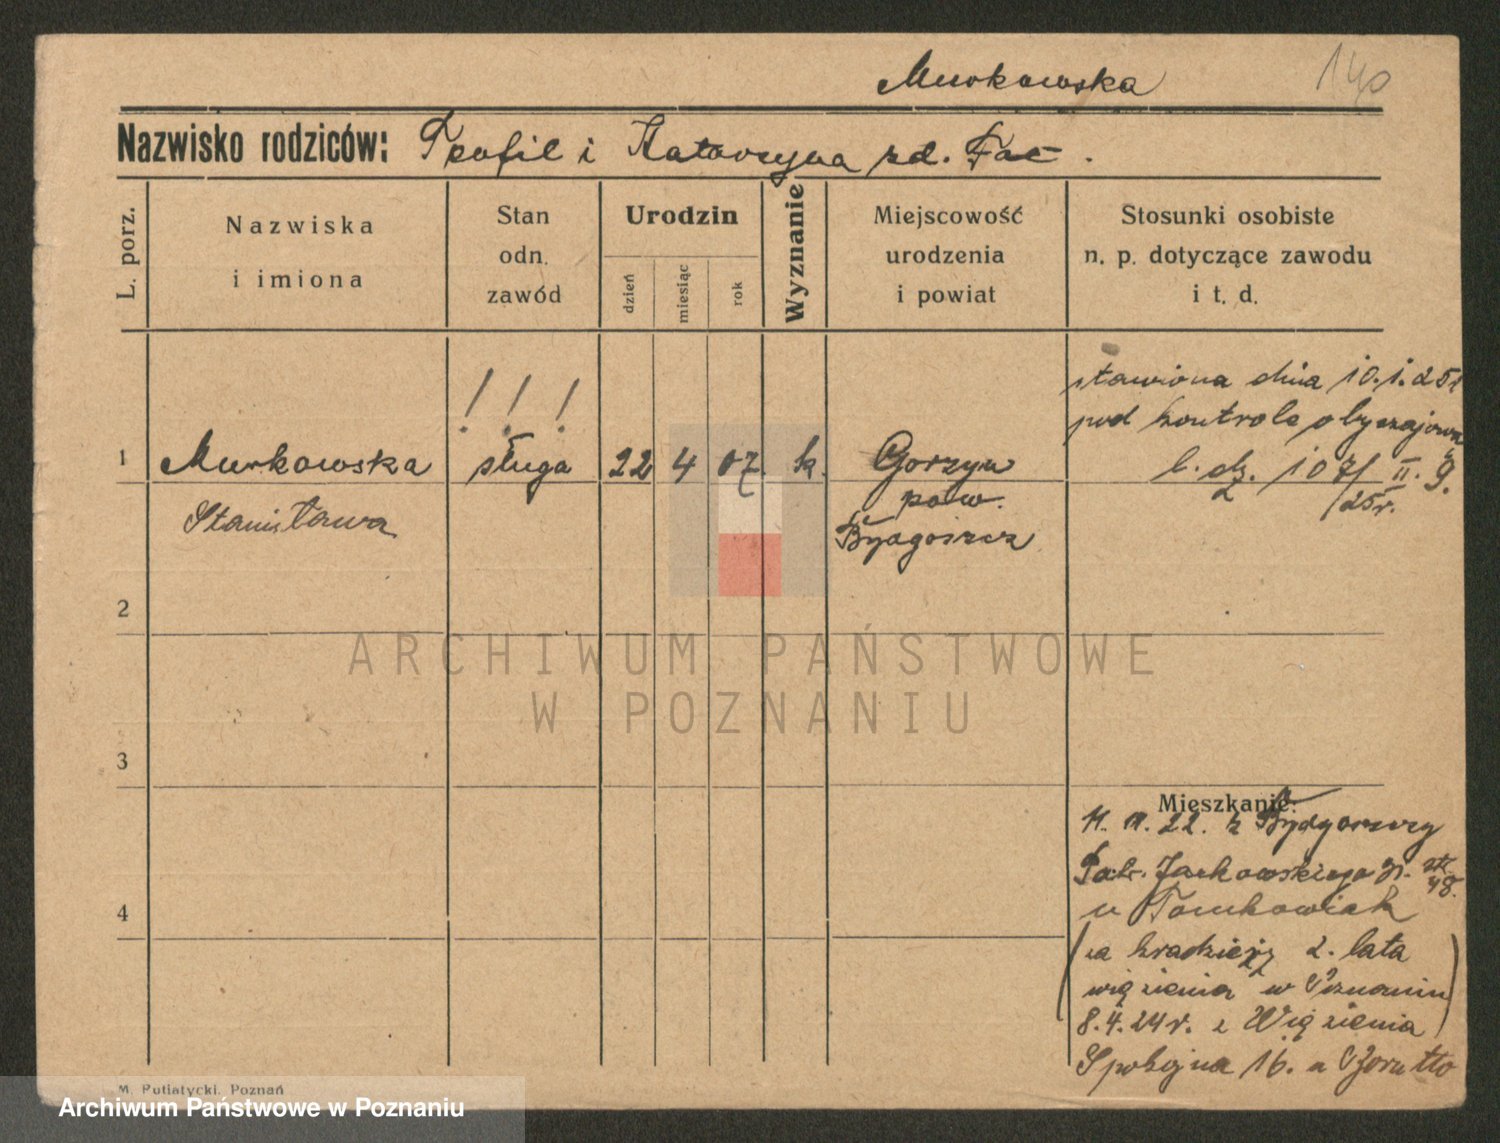 Murkowska
140
Nazwisko rodziców: Teofil i Katarzyna zd. Fac.
L. porz.
Nazwiska
i imiona
Stan
odn.
zawód
Urodzin
dzień
miesiąc
rok
Wyznanie
Miejscowość
urodzenia
i powiat
Stosunki osobiste
n. p. dotyczące zawodu
i t. d.
! ! !
stawiona dnia 10.1.25r
pod kontrole obyczajową
1 Murkowska sługa 22 4 07. k. Gorzyn l. dz. 107/II. g.
25r.
Stanisława
pow.
Bydgoszcz
2
3
4
Mieszkanie:
11. 22. z Bydgoszczy
Patr. Jackowskiego 31. 48.
u Tomkowiak
(za kradzież 2. lata
więzienia w Poznaniu
8.4.24r. z Więzienia)
Spokojna 16. u
M. Putiatycki, Poznań
ARCHIWUM PAŃSTWOWE
W POZNANIU
Archiwum Państwowe w Poznaniu